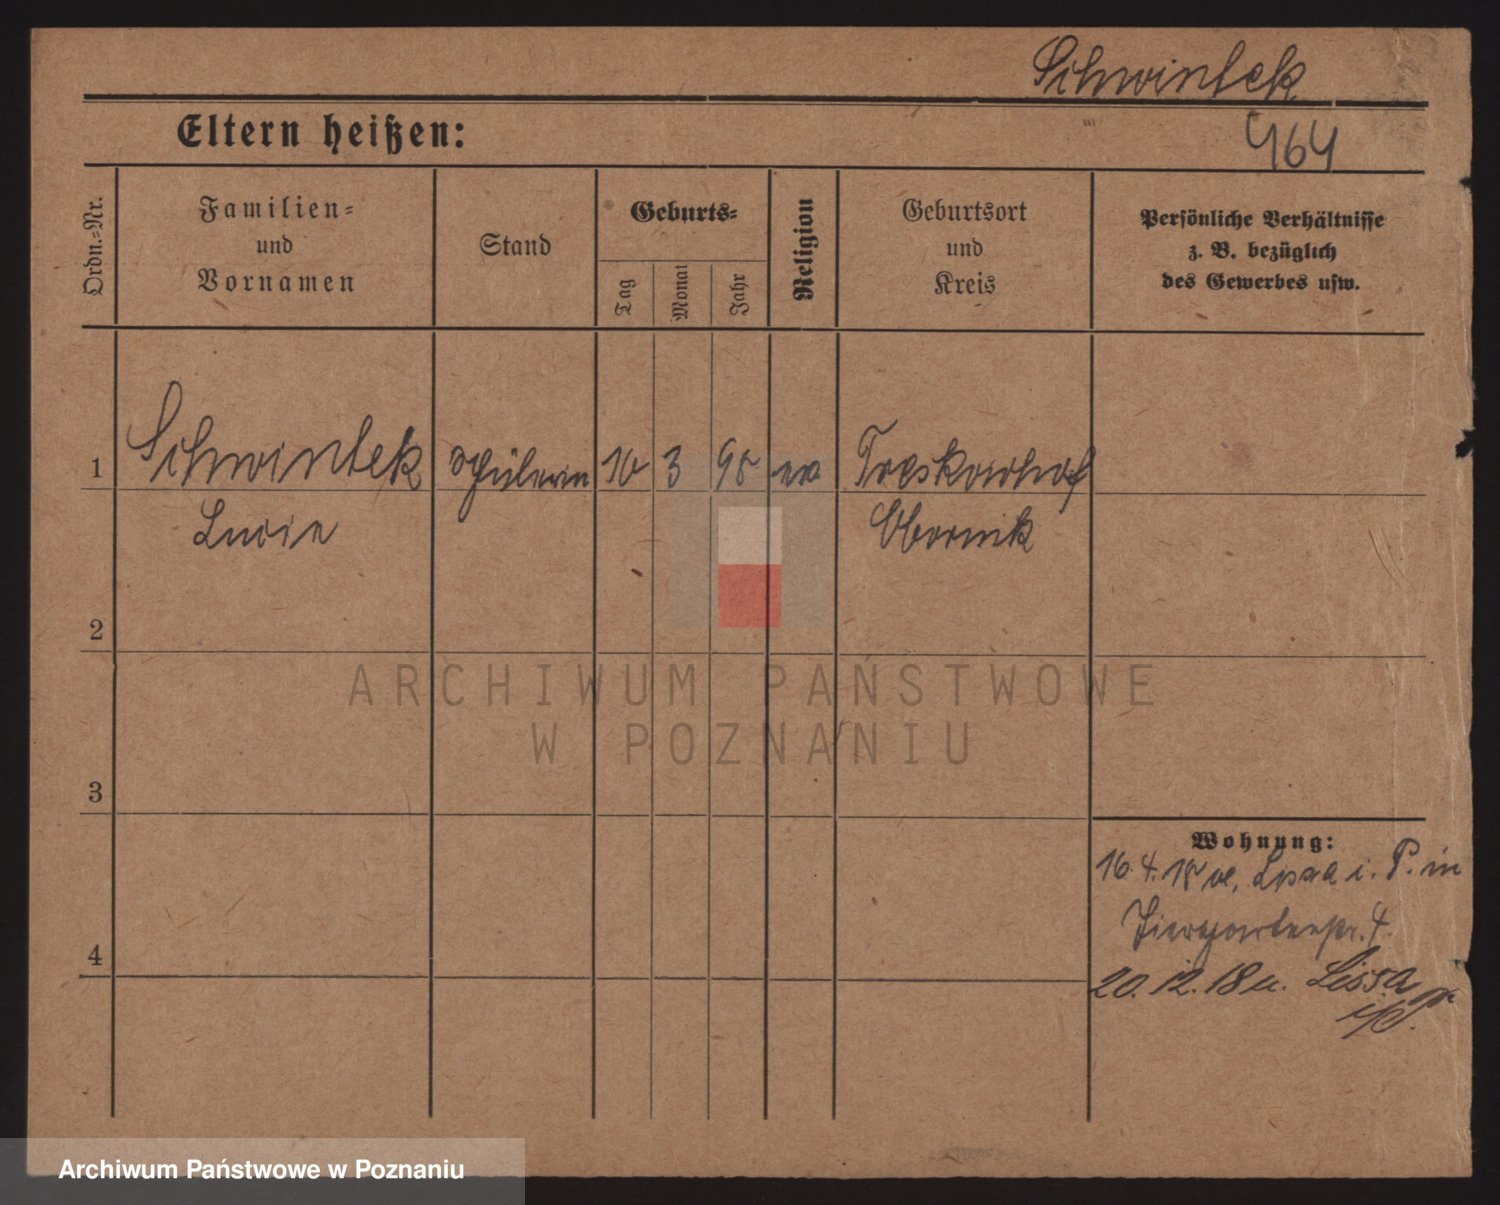 Schwintek
Eltern heißen:
464
Ordn.-Nr.
Familien-
und
Vornamen
Stand
Geburts-
Tag
Monat
Jahr
Religion
Geburtsort
und
Kreis
Persönliche Verhältnisse
z. B. bezüglich
des Gewerbes usw.
1
Schwintek Schülerin 10 3 98 ev Treskowhof
Lucie Obornik
2
3
4
Wohnung:
16.4.18 v. Lissa i. P. in
Tiergartenstr. 4.
20.12.18 n. Lissa
i/P.
ARCHIWUM PAŃSTWOWE
W POZNANIU
Archiwum Państwowe w Poznaniu